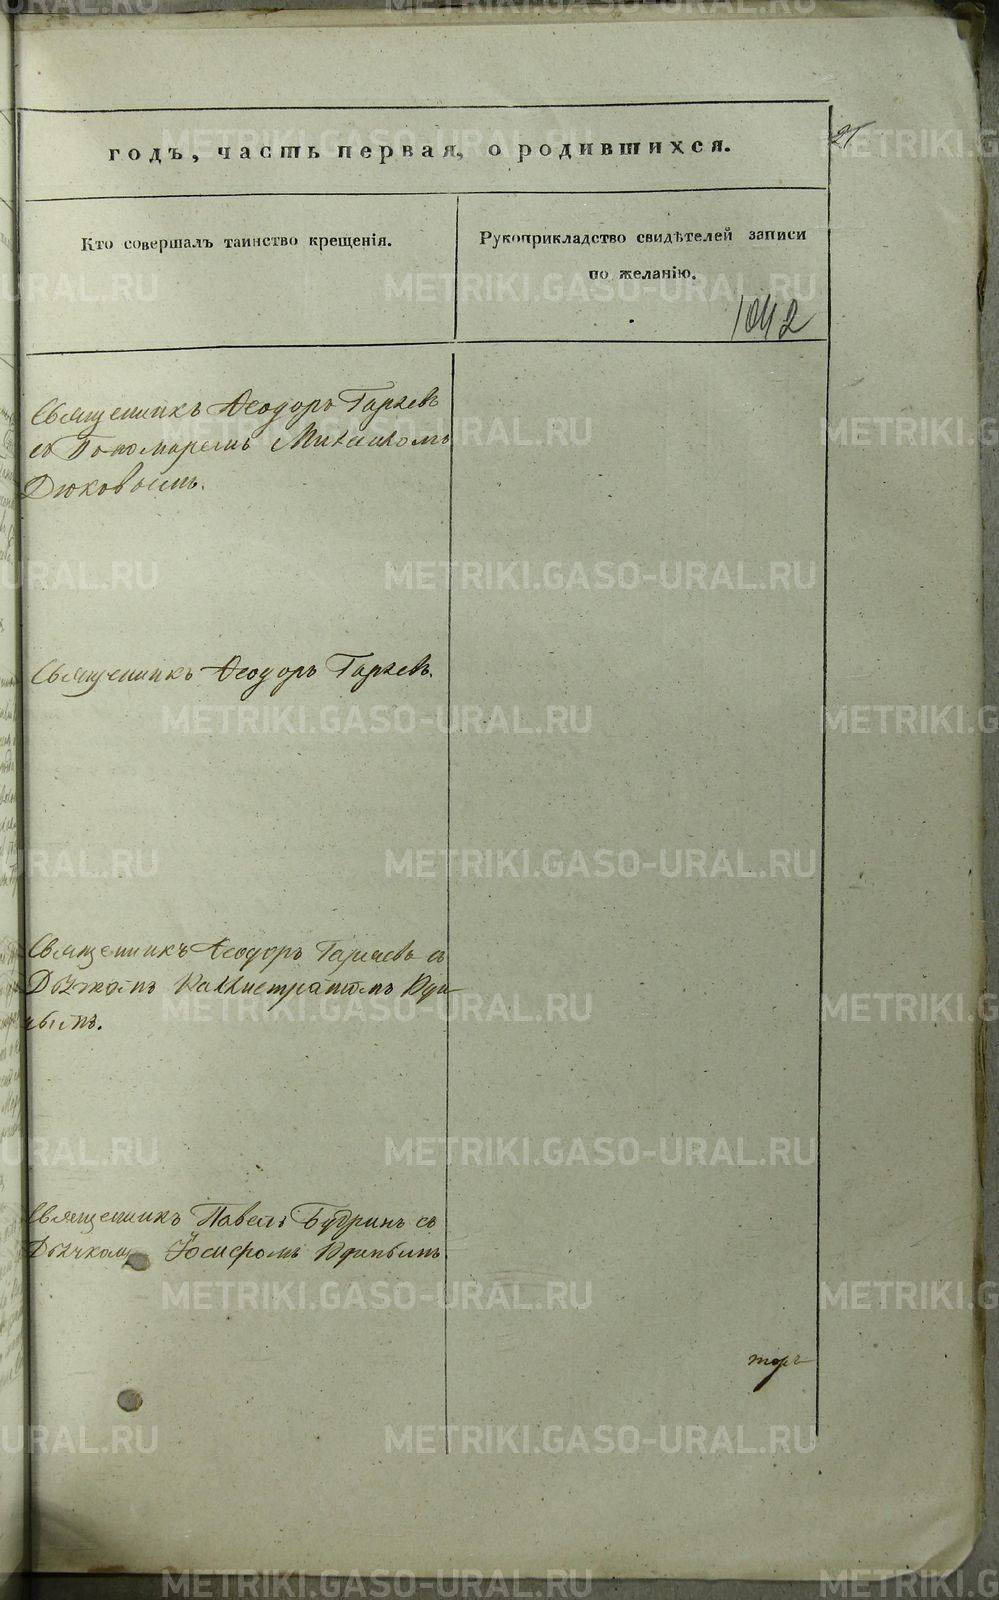 годъ, часть первая, о родившихся.
21
Кто совершалъ таинство крещенія.
Рукоприкладство свидѣтелей записи
по желанію.
1042
Священникъ Ѳеодоръ
съ Пономаремъ
Дюковымъ.
Священникъ Ѳеодоръ
Священникъ Ѳеодоръ съ
Дьячкомъ Каллистратомъ Уди-
Священникъ Павелъ Будринъ съ
Дьячкомъ Іосифомъ
METRIKI.GASO-URAL.RU